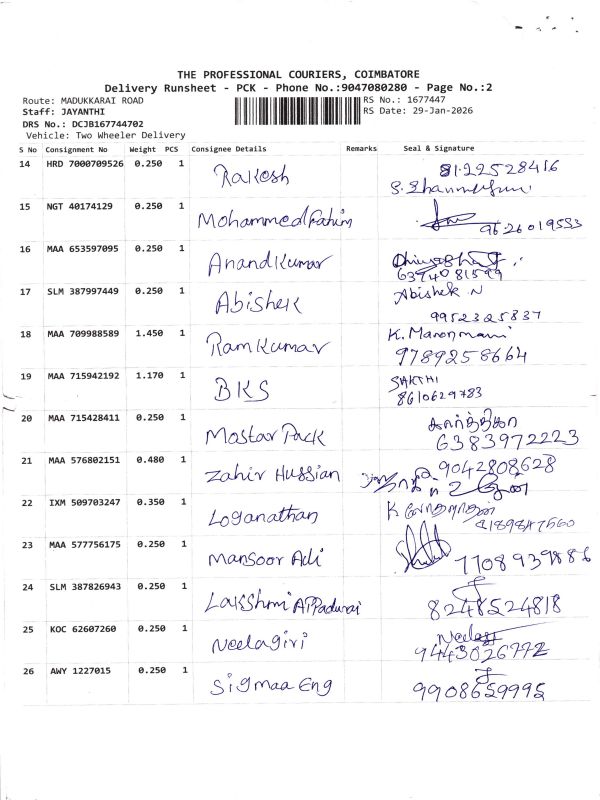 THE PROFESSIONAL COURIERS, COIMBATORE
Delivery Runsheet - PCK - Phone No.:9047080280 - Page No.:2
Route: MADUKKARAI ROAD
RS No.: 1677447
Staff: JAYANTHI
RS Date: 29-Jan-2026
DRS No.: DCJB167744702
Vehicle: Two Wheeler Delivery
S No Consignment No Weight PCS Consignee Details Remarks Seal & Signature
14 HRD 7000709526 0.250 1 Rakesh 8122528416
15 NGT 40174129 0.250 1 Mohammed Fahim 9626019553
16 MAA 653597095 0.250 1 Anand Kumar
6374081599
17 SLM 387997449 0.250 1 Abishek Abishek N
9952325837
18 MAA 709988589 1.450 1 Ram Kumar K. Manonmani
9789258664
19 MAA 715942192 1.170 1 BKS SAKTHI
8610629783
20 MAA 715428411 0.250 1 Mostar Pack கார்த்திகா
6383972223
21 MAA 576802151 0.480 1 Zahir Hussian 9042808628
22 IXM 509703247 0.350 1 Loganathan K லோகநாதன்
23 MAA 577756175 0.250 1 Mansoor Ali 7708939886
24 SLM 387826943 0.250 1 Lakshmi APPadurai 8248524818
25 KOC 62607260 0.250 1 Neelagiri
9443026772
26 AWY 1227015 0.250 1 Sigmaa Eng 9908659995